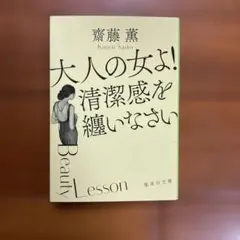 齋藤 薫
Kaoru Saito
大人の女よ!
清潔感を
纏いなさい
Beauty
Lesson
集英社文庫